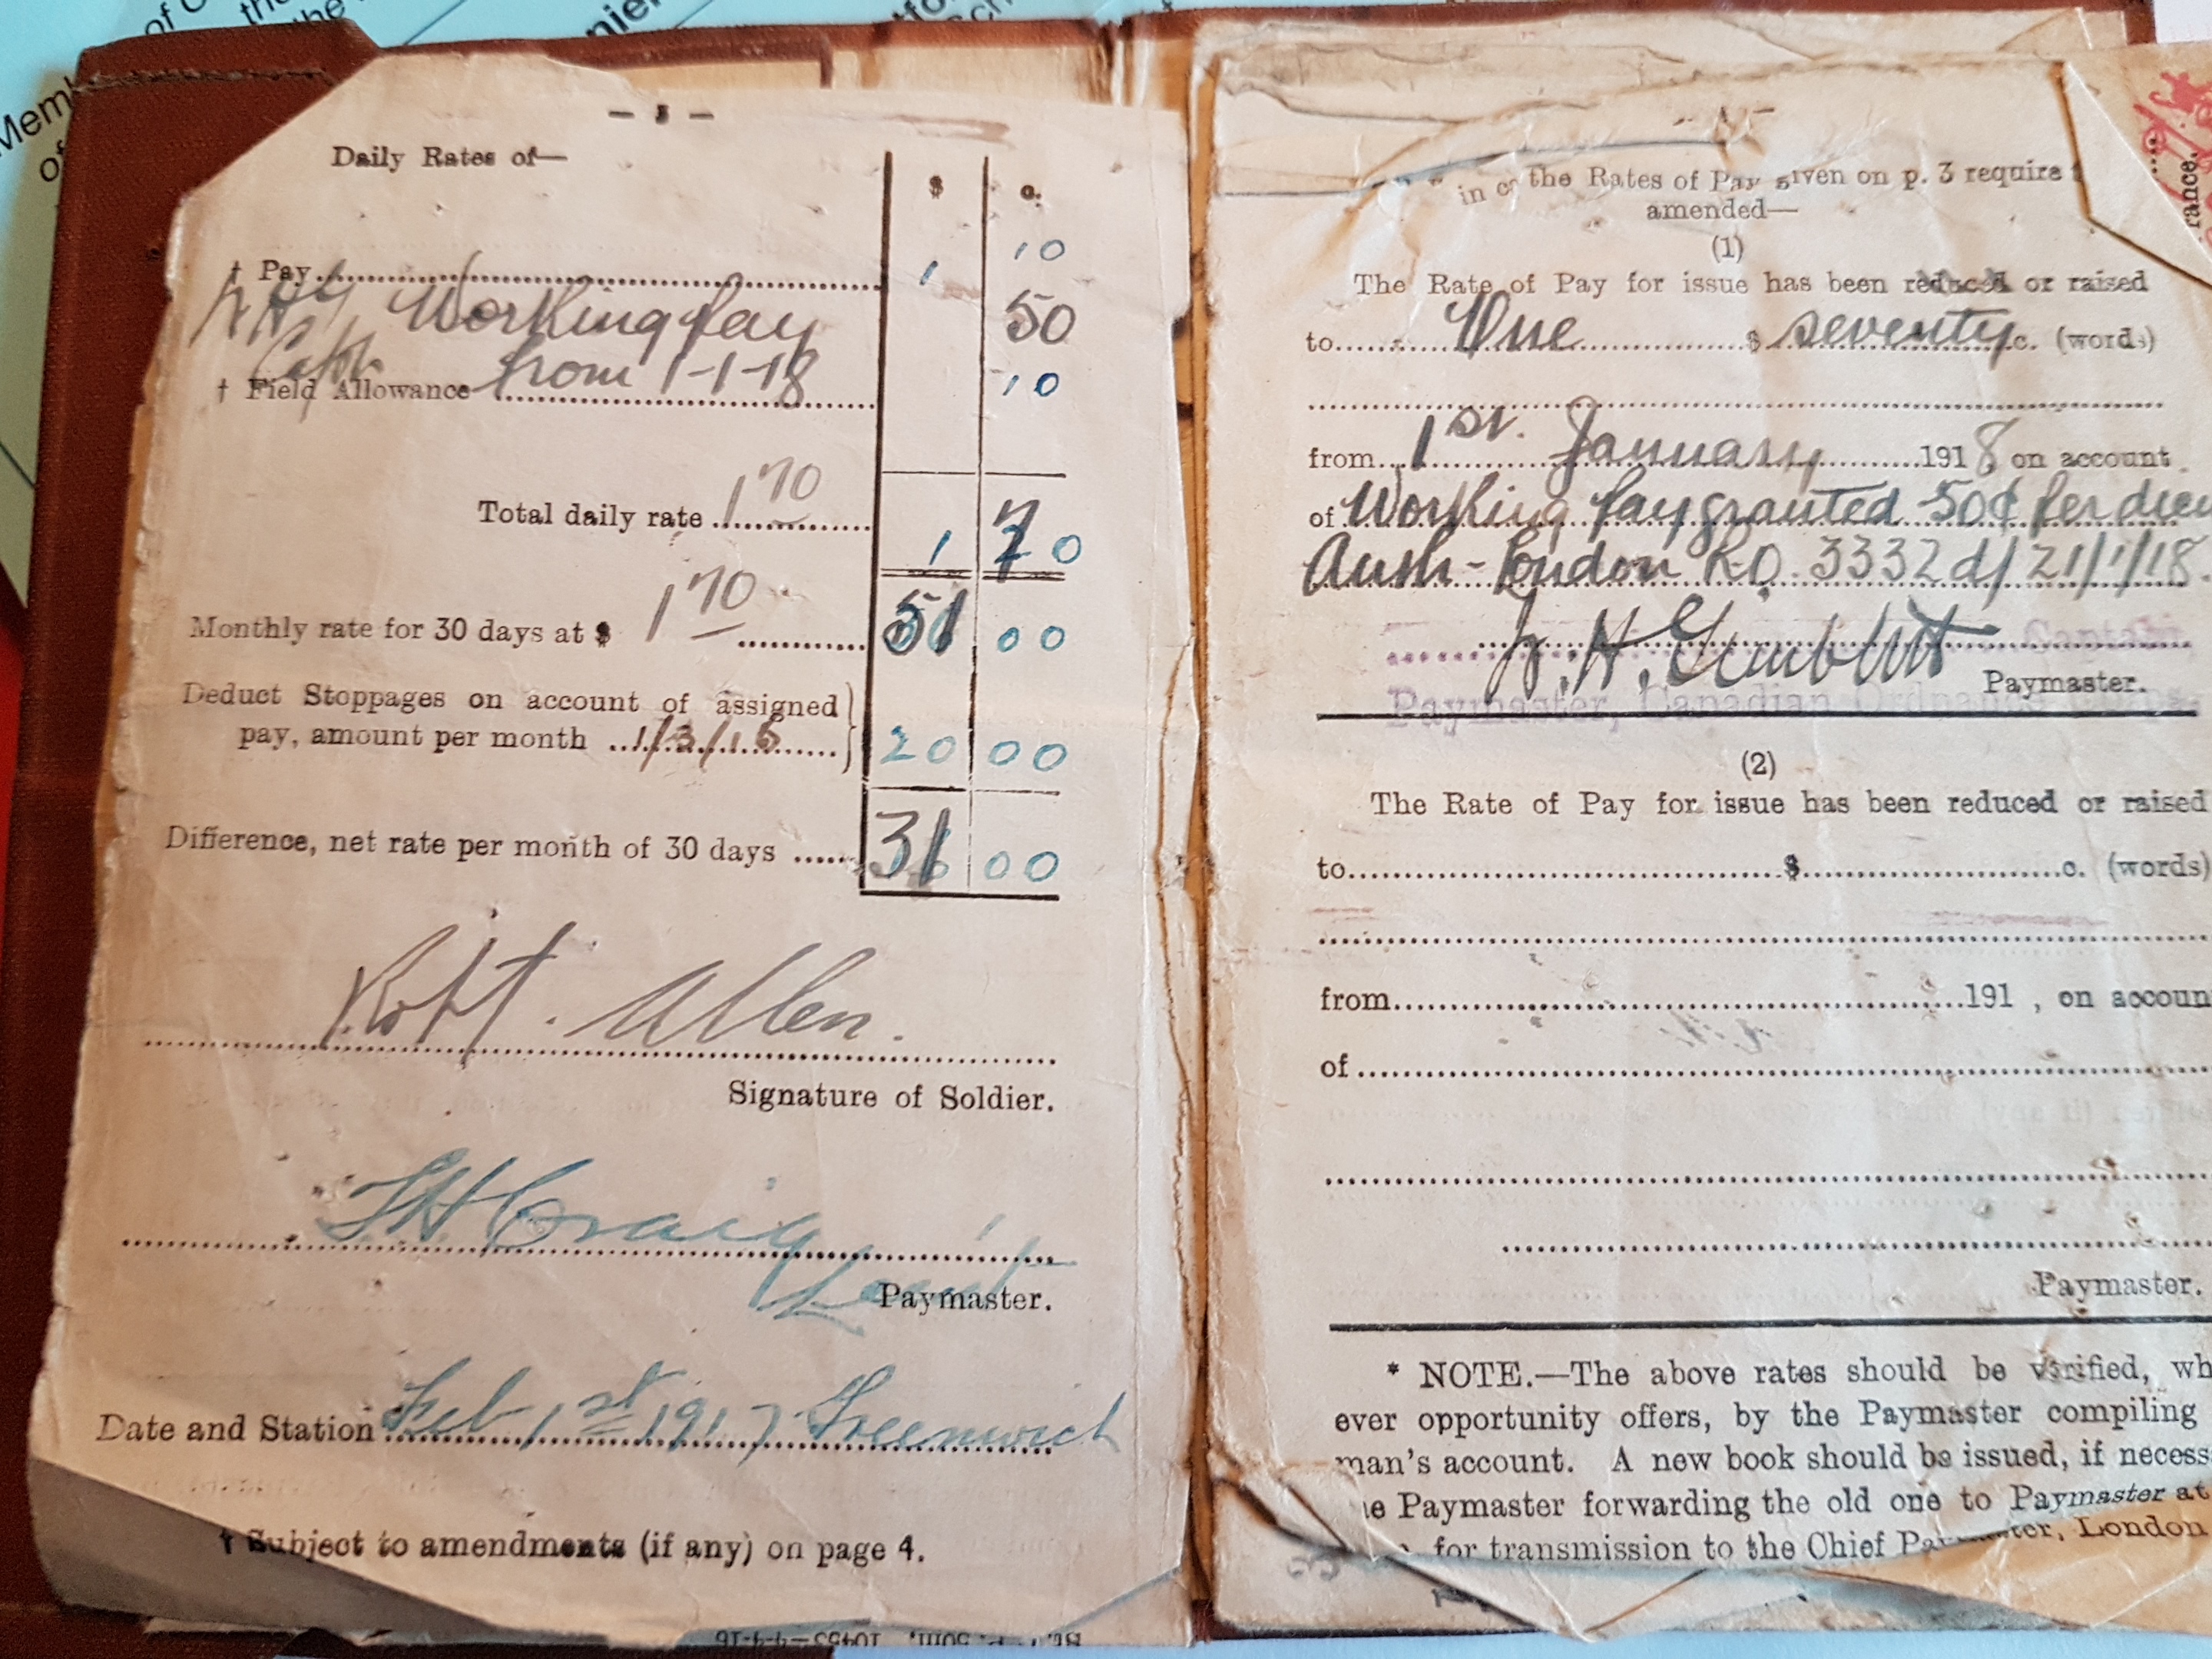 — 3 —
Daily Rates of—
$ c.
† Pay 1 10
Working Pay 50
from 1-1-18
† Field Allowance 10
Total daily rate 1 70
1 70
Monthly rate for 30 days at $ 1 70 51 00
Deduct Stoppages on account of assigned
pay, amount per month 1/3/16 20 00
Difference, net rate per month of 30 days 31 00
Robt. Allen.
Signature of Soldier.
Craig
Paymaster.
Date and Station Feb 1st 1917 Greenwich
† Subject to amendments (if any) on page 4.
the Rates of Pay given on p. 3 require
amended—
(1)
The Rate of Pay for issue has been reduced or raised
to One $ seventy c. (words)
from 1st. January 1918, on account
of Working Pay granted 50¢ per diem
Auth - London R.O. 3332 d/ 21/1/18.
Captain
Paymaster.
Paymaster, Canadian Ordnance
(2)
The Rate of Pay for issue has been reduced or raised
to $ c. (words)
from 191 , on accoun
of
Paymaster.
* NOTE.—The above rates should be verified, wh
ever opportunity offers, by the Paymaster compiling
man's account. A new book should be issued, if necess
Paymaster forwarding the old one to Paymaster at
for transmission to the Chief Paymaster, London
rance.